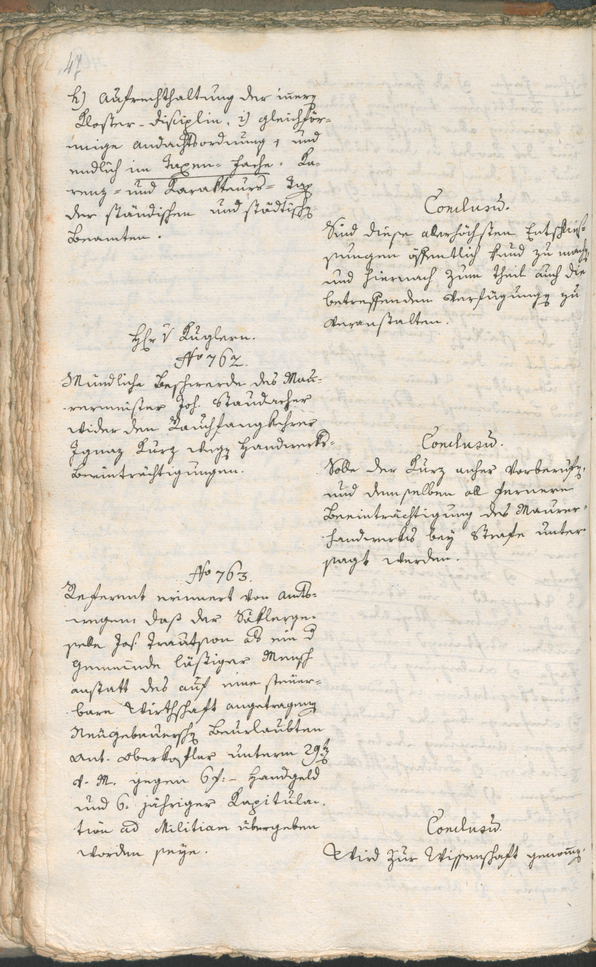 47
h) Aufrechthaltung der innern
Kloster-Disciplin, i) gleichför-
mige Andachtsordnung, und
endlich im Taxen-fache, Ka-
renz- und Karakteurs-Tax
der ständischen und städtischen
Beamten.
Conclusum.
Sind diese allerhöchsten Entschlies-
sungen öffentlich kund zu machen,
und hiernach zum theil auch die
betreffenden Verfügungen zu
veranstalten.
Hr v Kuglern.
No 762.
Mündliche Beschwerde des Mau-
rermeister Joh. Staudacher
wider den Rauchfangkehrer
Ignaz Kurz wegen Handwerks-
Beeinträchtigungen.
Conclusum.
Solle der Kurz anher vorberufen,
und demselben all fernere
Beeinträchtigung des Maurer-
handwerks bey Strafe unter-
sagt werden.
No 763.
Referent erinnert von Amts-
wegen daß der Säklerge-
selle Jos. Trautson als ein d
Gemeinde lästiger Mensch
anstatt des auf eine steuer-
bare Wirthschaft angetragenen
Neugebauerschen Beurlaubten
Ant. Oberkofler unterm 29ten
d. M. gegen 6 f.- Handgeld
und 6. jähriger Kapitula-
tion ad Militiam übergeben
worden seye.
Conclusum.
Wird zur Wissenschaft genommen.